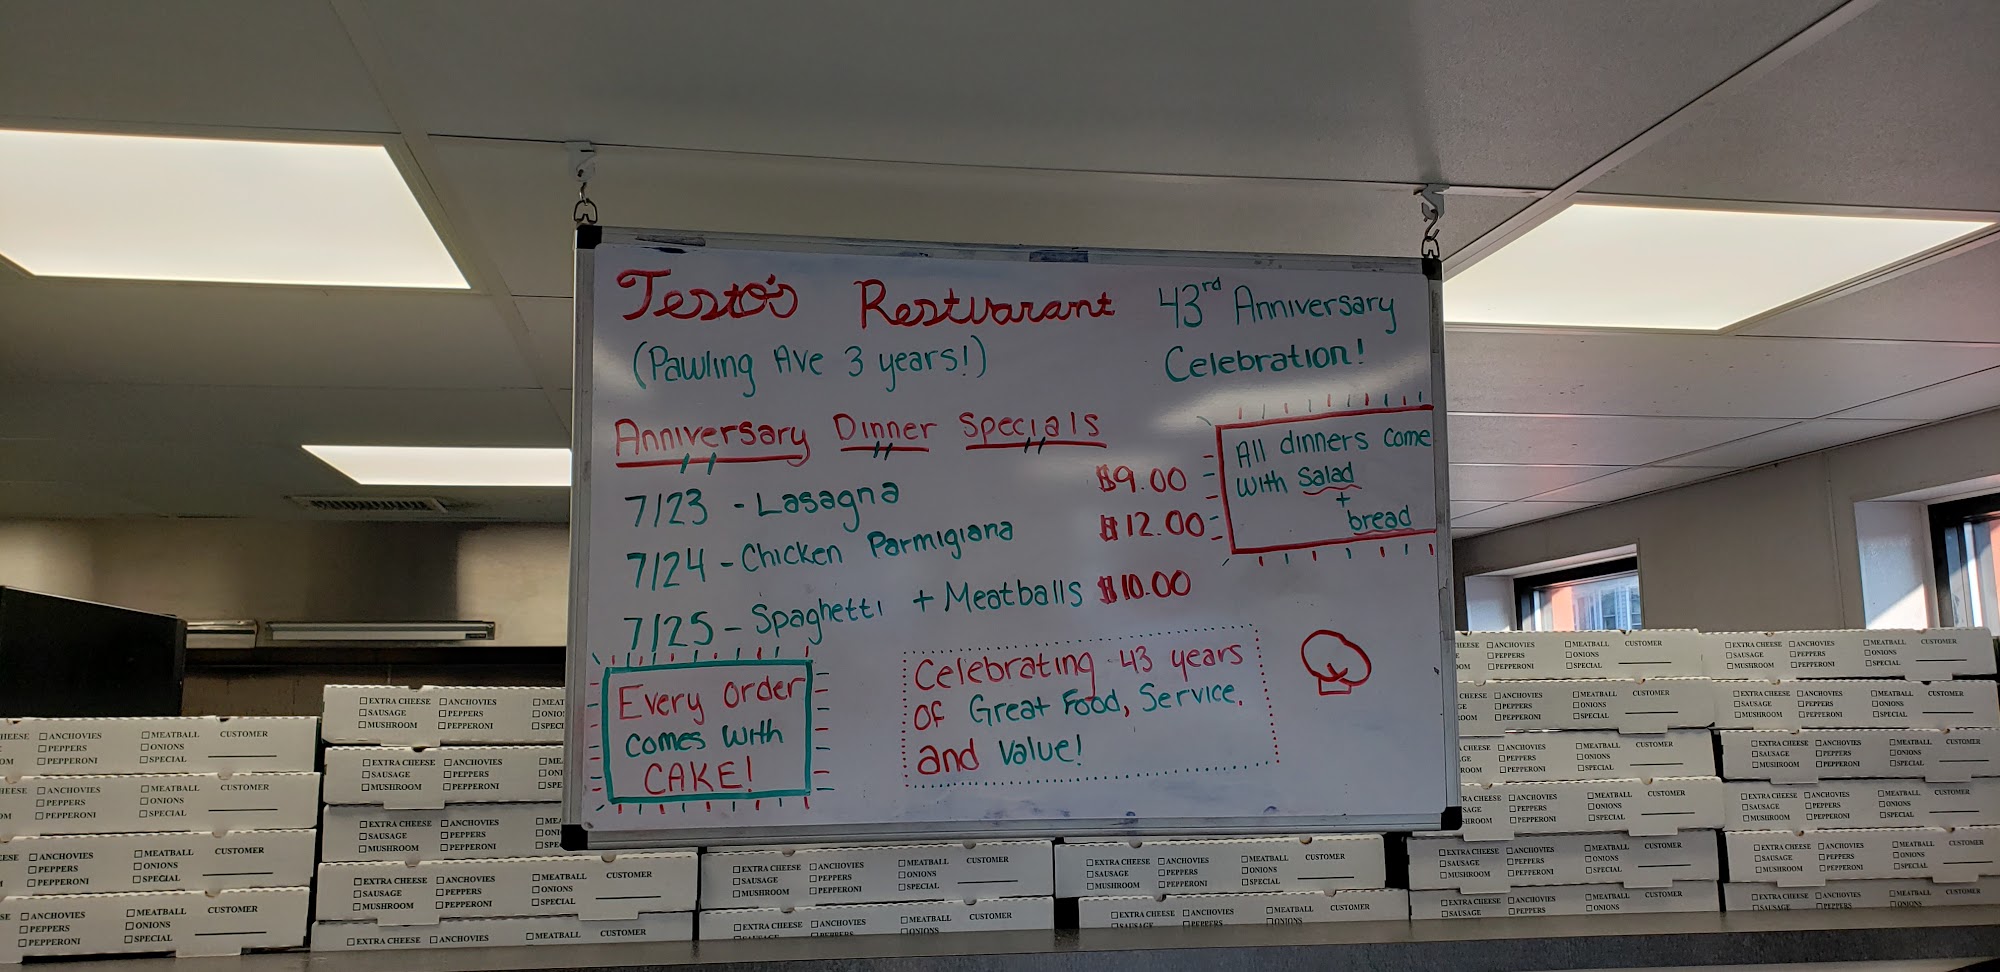 Testo's Restuarant
43rd Anniversary
Celebration!
(Pawling Ave 3 years!)
Anniversary Dinner Specials
7/23 - Lasagna $9.00
7/24 - Chicken Parmigiana $12.00
7/25 - Spaghetti + Meatballs $10.00
All dinners come
with Salad
+
bread
Every order
comes with
CAKE!
Celebrating 43 years
of Great Food, Service,
and Value!
EXTRA CHEESE ANCHOVIES MEATBALL CUSTOMER
SAUSAGE PEPPERS ONIONS
MUSHROOM PEPPERONI SPECIAL